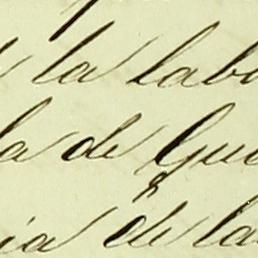 la labo
la de Gui
ia de la